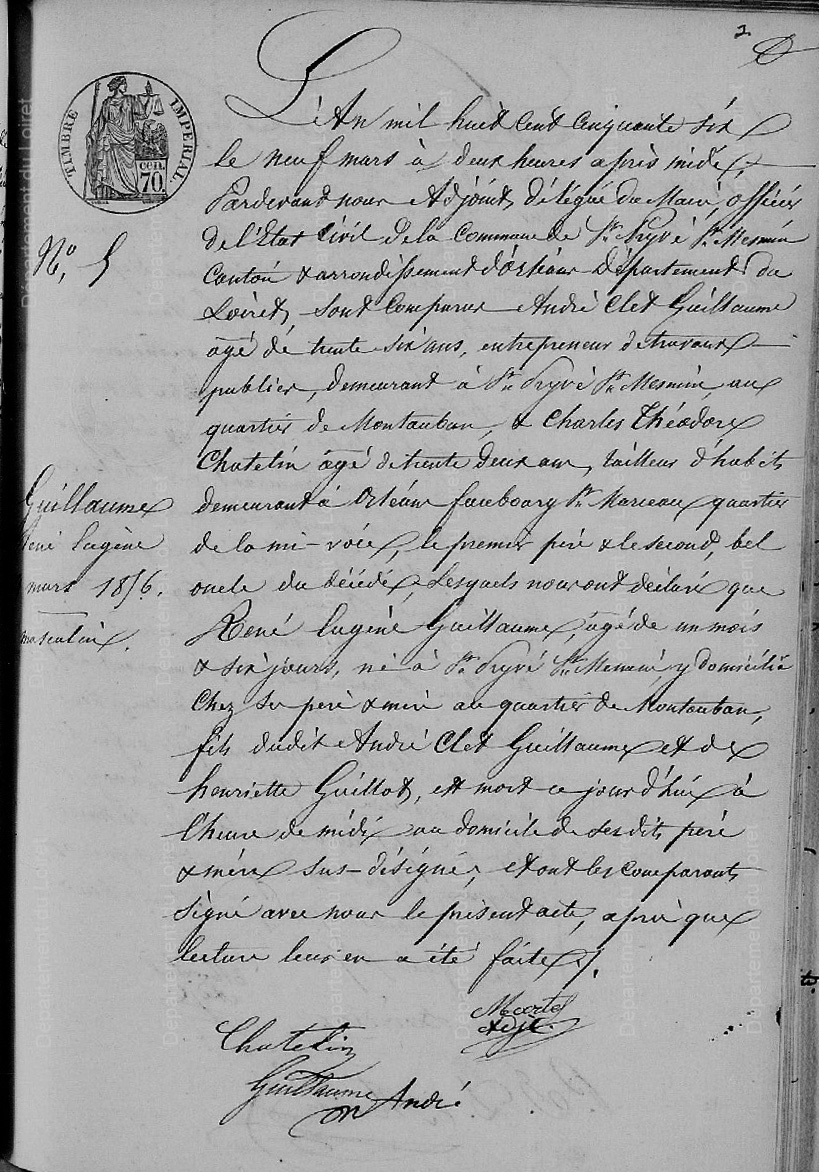 2
TIMBRE IMPERIAL.
CEN. 70
L'An mil huit cent cinquante six
le neuf mars à deux heures après midi,
Pardevant nous Adjoint délégué du Maire, officier
de l'Etat Civil de la Commune de St. Pryvé St. Mesmin
Canton & arrondissement d'Orléans Département du
Loiret, sont Comparus André Clet Guillaume
âgé de trente six ans, entrepreneur de travaux
publics, demeurant à St. Pryvé St. Mesmin, au
quartier de Montauban, & Charles Théodore
Chatelin âgé de trente deux ans, tailleur d'habits
demeurant à Orléans faubourg St. Marceau quartier
de la mi-voie, le premier père & le second, bel
oncle du décédé, lesquels nous ont déclaré que
René Eugène Guillaume, âgé de un mois
& six jours, né à St. Pryvé St. Mesmin, y domicilié
Chez ses père & mère au quartier de Montauban,
fils dudit André Clet Guillaume et de
henriette Guillot, est mort ce jourd'hui à
l'heure de midi au domicile de sesdits père
& mère sus-désigné, et ont les comparants
signé avec nous le présent acte, après que
lecture leur en a été faite ./.
No. 5
Guillaume
René Eugène
mars 1856.
masculin.
Adjt.
Chatelin
Guillaume André
Département du Loiret